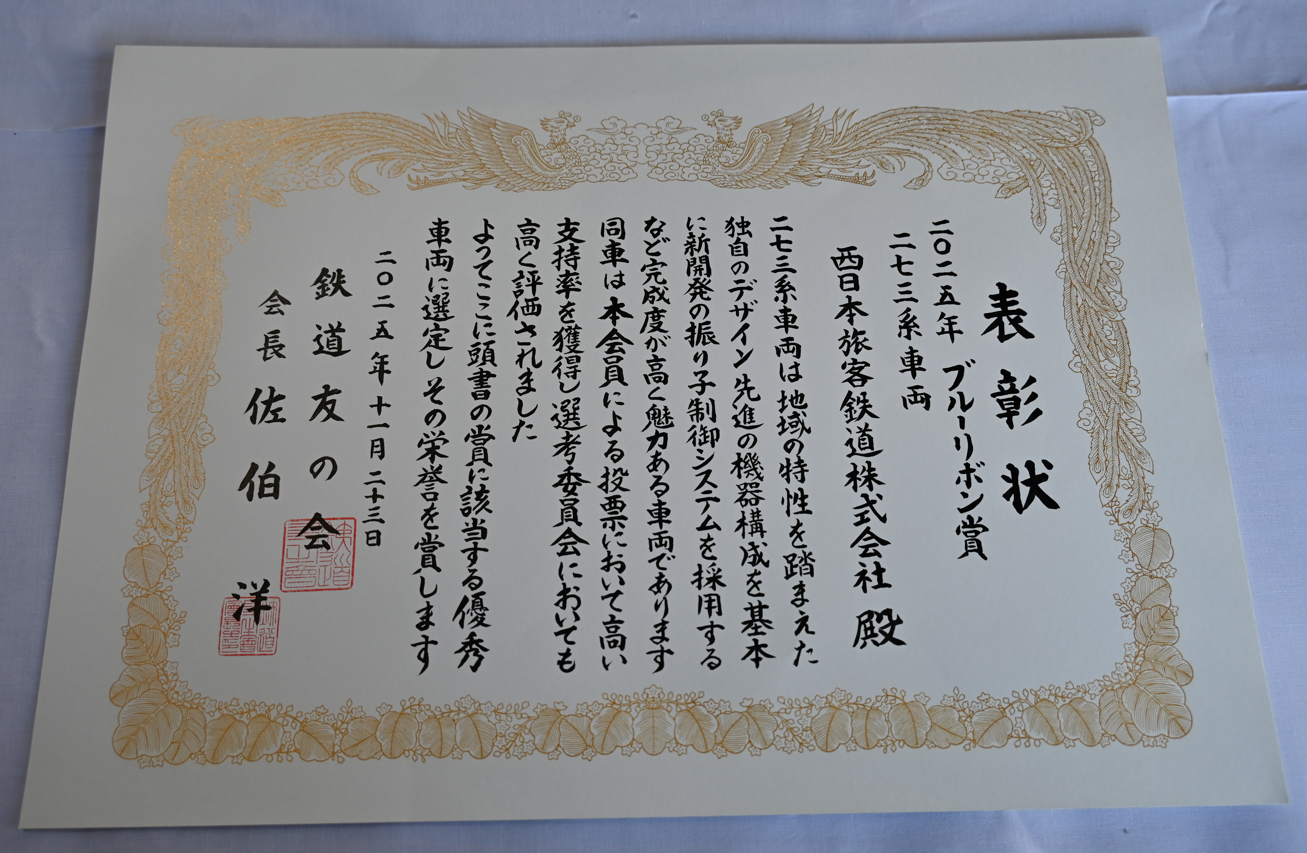 表彰状
二〇二五年 ブルーリボン賞
二七三系車両
西日本旅客鉄道株式会社 殿
二七三系車両は地域の特性を踏まえた
独自のデザイン 先進の機器構成を基本
に新開発の振り子制御システムを採用する
など完成度が高く魅力ある車両であります
同車は本会員による投票において高い
支持率を獲得し選考委員会においても
高く評価されました
よってここに頭書の賞に該当する優秀
車両に選定し その栄誉を賞します
二〇二五年十一月二十三日
鉄道友の会
会長 佐伯 洋